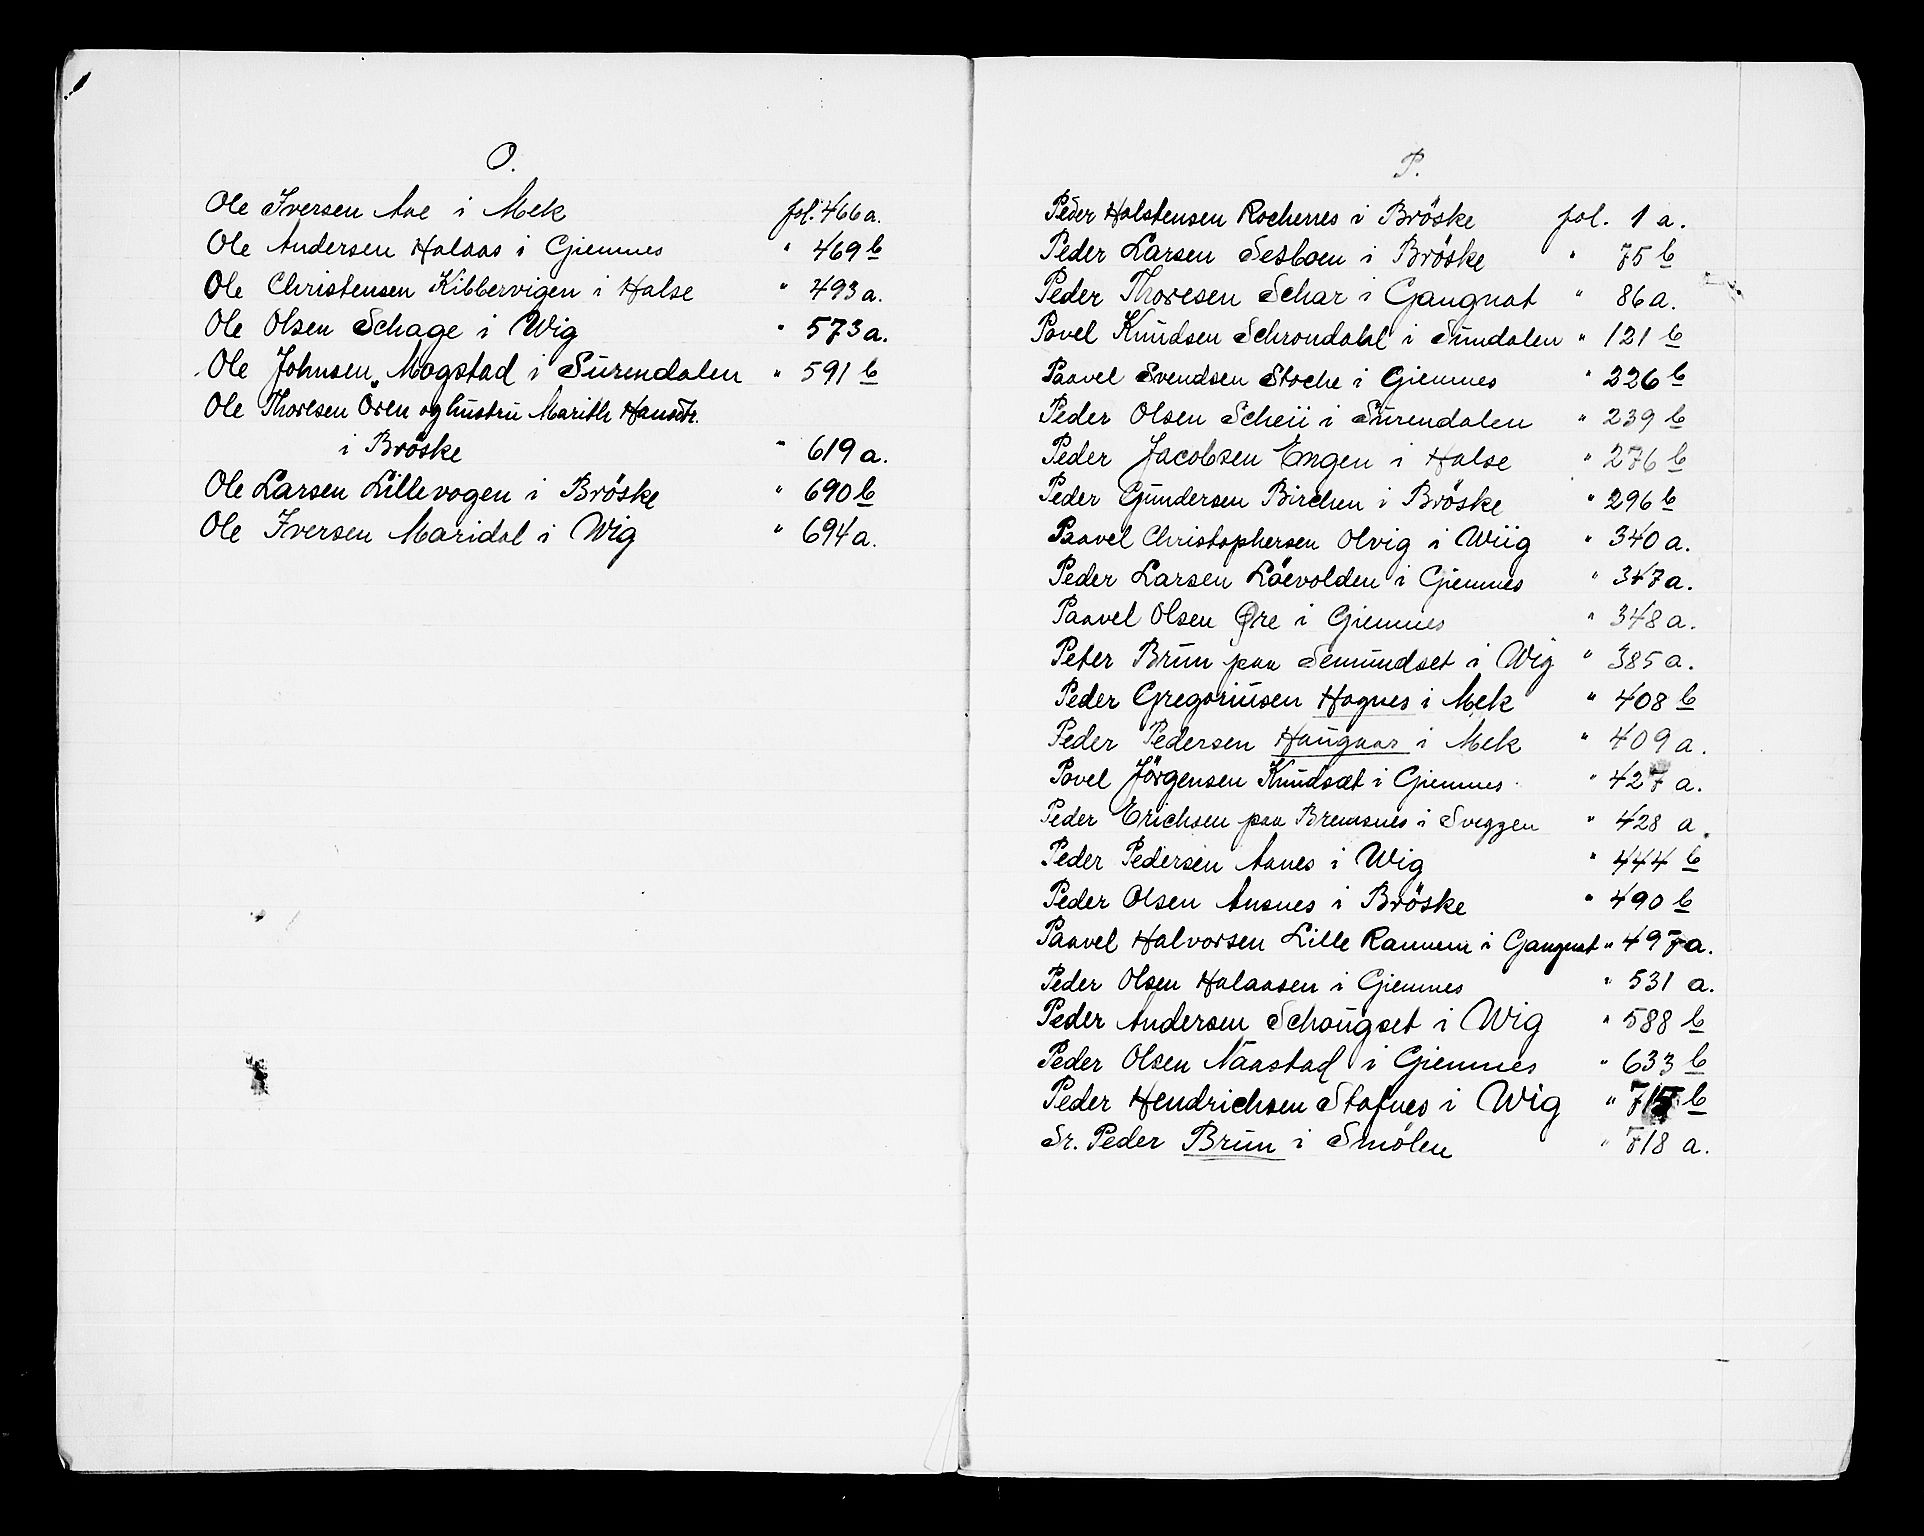 O.
Ole Iversen Aae i Mek fol. 466 a.
Ole Andersen Halaas i Giemnes " 469 b
Ole Christensen Kibbervigen i Halse " 493 a.
Ole Olsen Schage i Wig " 573 a.
Ole Johnsen Mogstad i Surendalen " 591 b
Ole Thoresen Oren og hustru Marith Hansdtr.
i Bröske " 619 a.
Ole Larsen Lillevogen i Bröske " 690 b
Ole Iversen Maridal i Wig " 694 a.
P.
Peder Holstensen Rochernes i Bröske fol. 1 a.
Peder Larsen Sesboen i Bröske " 75 b
Peder Thoresen Schar i Gangnat " 86 a.
Povel Knudsen Schrondahl i Sundalen " 121 b
Paavel Svendsen Stoche i Giemnes " 226 b
Peder Olsen Scheii i Surendalen " 239 b
Peder Jacobsen Engen i Halse " 276 b
Peder Gundersen Birchen i Bröske " 296 b
Paavel Christophersen Olvig i Wiig " 340 a.
Peder Larsen Löevolden i Giemnes " 347 a.
Paavel Olsen Øre i Giemnes " 348 a.
Peter Brun paa Semundset i Wig " 385 a.
Peder Gregoriusen Hognes i Mek " 408 b
Peder Pedersen Haugnar i Mek " 409 a.
Povel Jörgensen Knudsæt i Giemnes " 427 a.
Peder Erichsen paa Bremsnes i Sveggen " 428 a.
Peder Pedersen Aanes i Wig " 444 b
Peder Olsen Ansnes i Bröske " 490 b
Paavel Halvorsen Lille Rannem i Gangnat " 497 a.
Peder Olsen Halaasen i Giemnes " 531 a.
Peder Andersen Schougset i Wig " 588 b
Peder Olsen Naastad i Giemnes " 633 b
Peder Hendrichsen Stafnes i Wig " 717 b
Sr. Peder Brun i Smölen " 718 a.